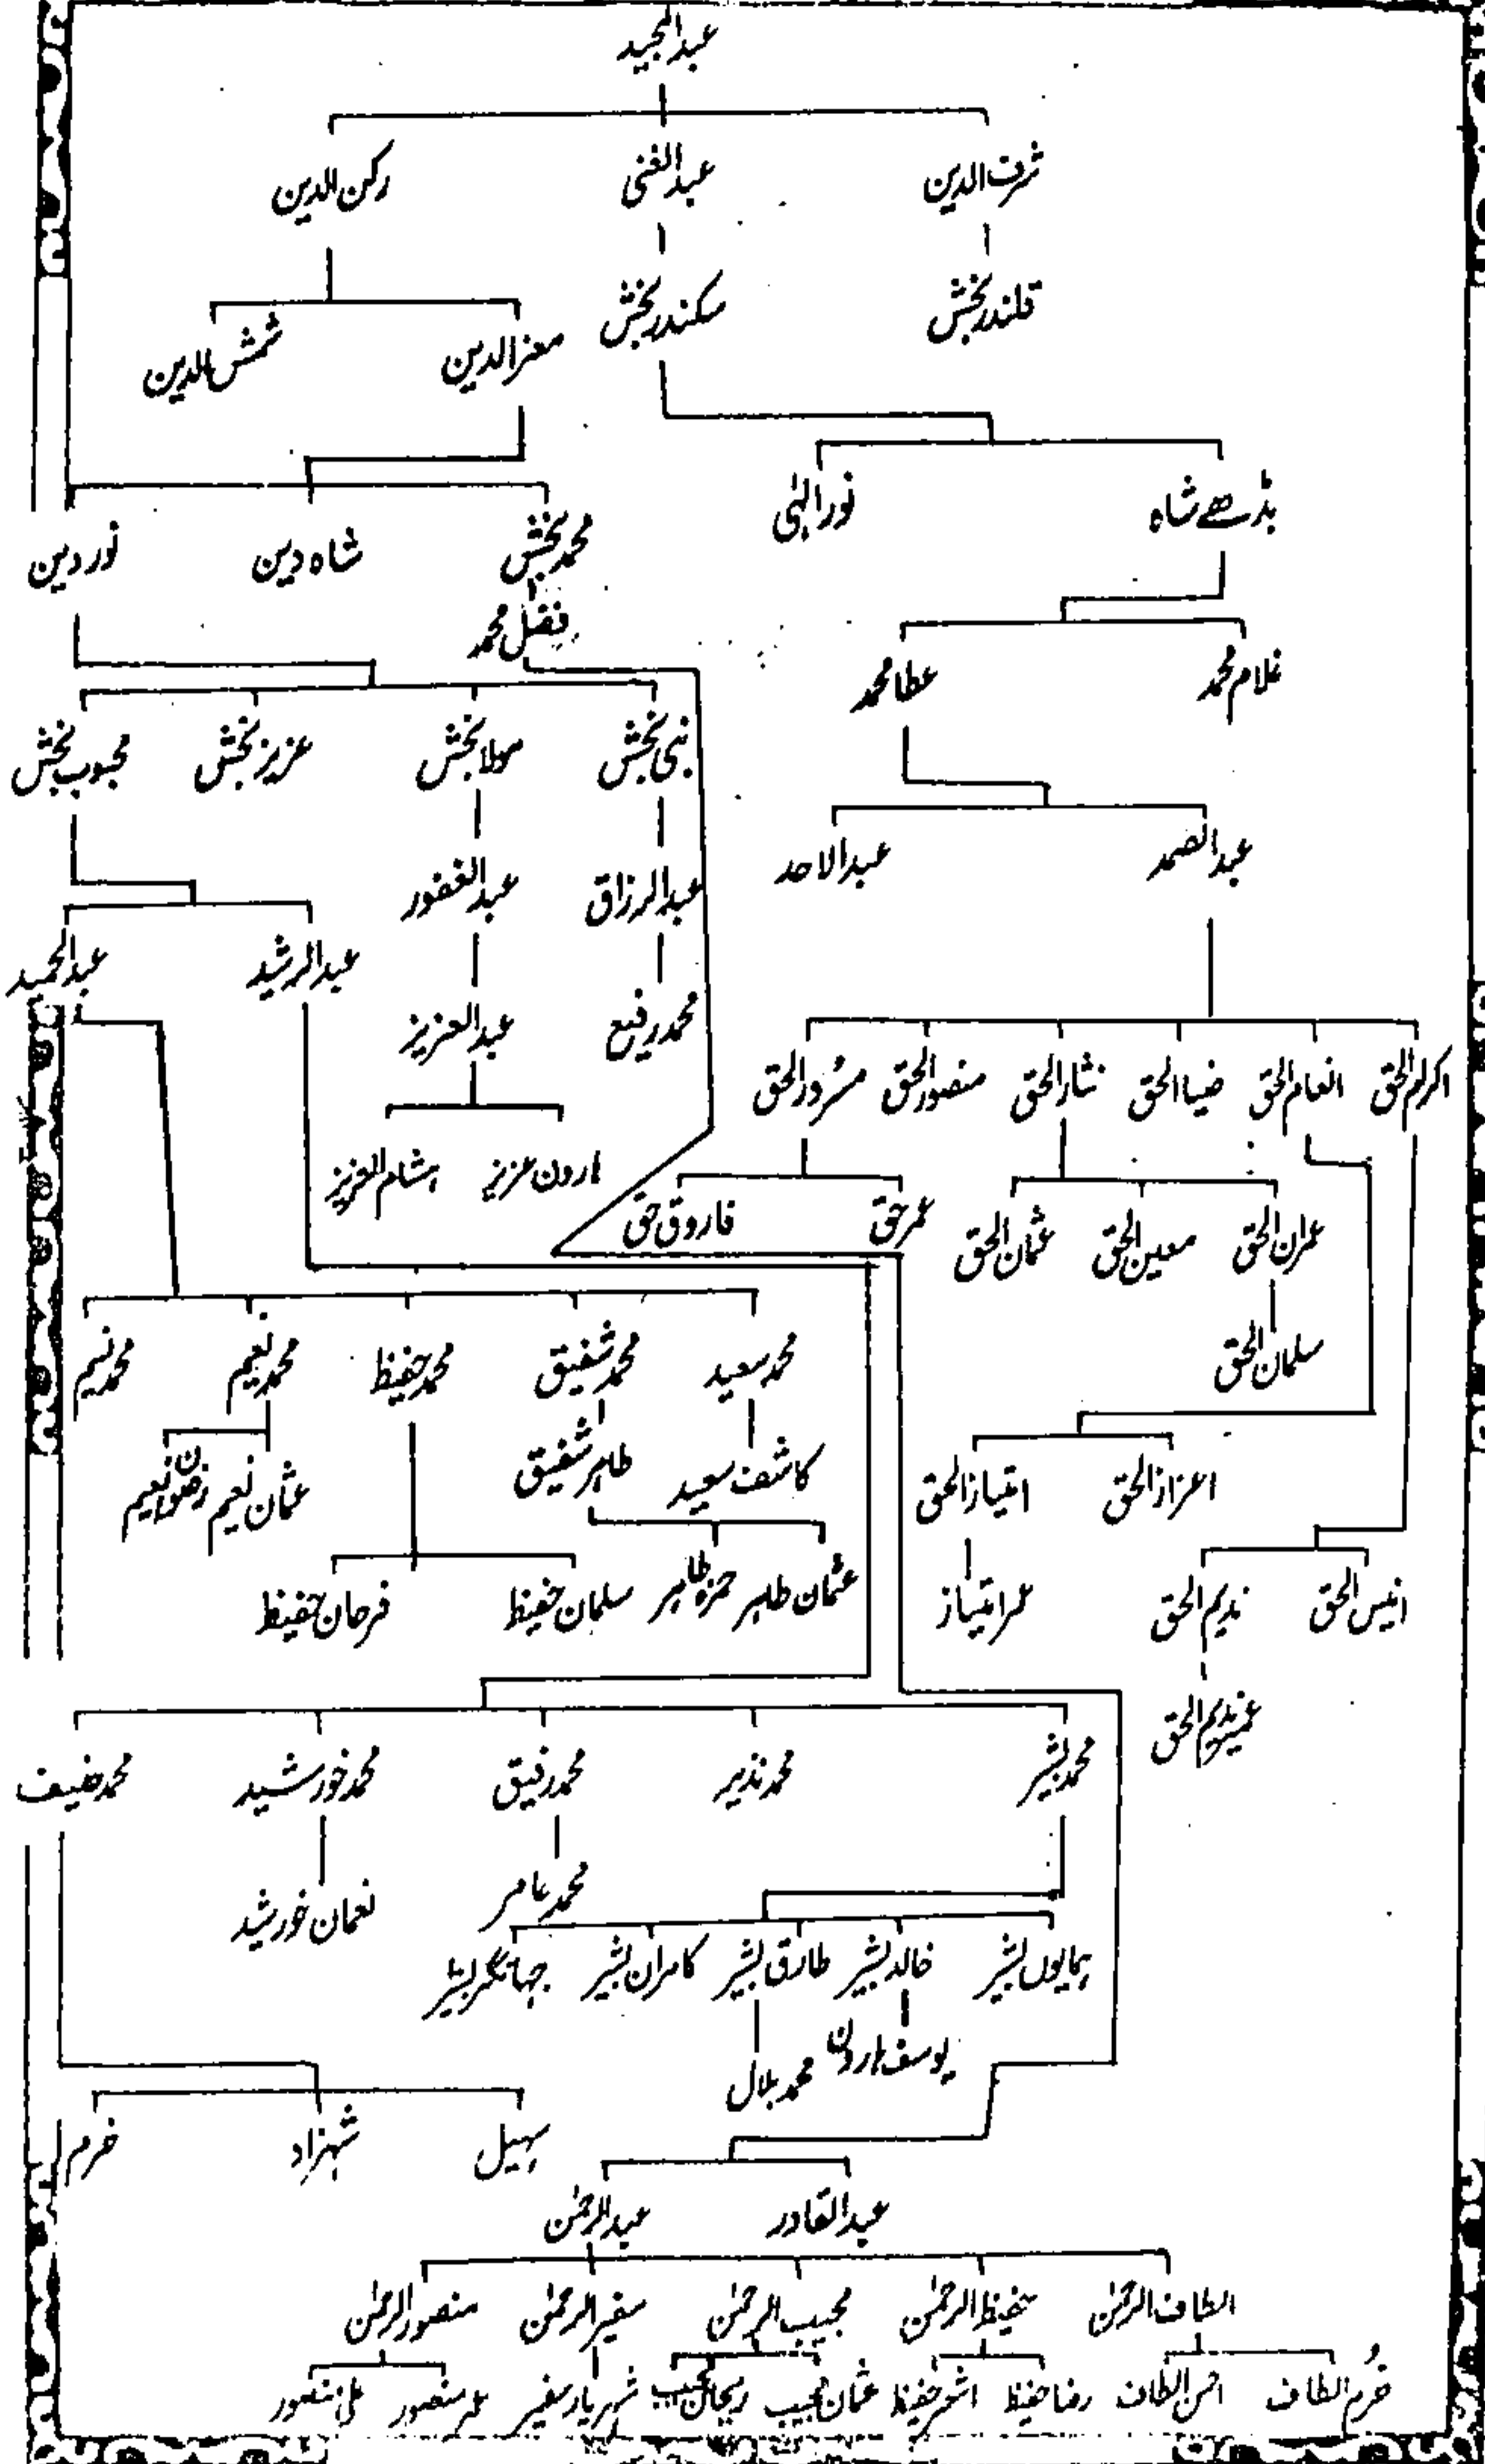 عبدالمجید
شرف الدین عبدالغنی رکن الدین
قلندر بخش سکندر بخش معز الدین شمس الدین
بڈھے شاہ نور الہٰی
محمد بخش شاہ دین نور دین
فضل محمد
غلام محمد عطا محمد
نبی بخش مولا بخش عزیز بخش محبوب بخش
عبدالصمد عبدالاحد
عبدالرزاق عبدالغفور
عبدالرشید عبدالحمید
محمد رفیع عبدالعزیز
اکرام الحق انعام الحق ضیا الحق نثار الحق منصور الحق مسرور الحق
ہارون عزیز ہشام العزیز
عمران الحق معین الحق عثمان الحق عمر حق فاروق حق
سلمان الحق
محمد سعید محمد شفیق محمد حفیظ محمد نعیم محمد نسیم
اعزاز الحق امتیاز الحق
کاشف سعید طاہر شفیق عثمان نعیم رضوان نعیم
انیس الحق ندیم الحق عمر امتیاز
عثمان طاہر حمزہ طاہر سلمان حفیظ فرحان حفیظ
عمیر ندیم الحق
محمد بشیر محمد نذیر محمد رفیق محمد خورشید محمد حنیف
محمد عامر نعمان خورشید
ہمایوں بشیر خالد بشیر طارق بشیر کامران بشیر جہانگیر بشیر
یوسف ہارون محمد بلال
سہیل شہزاد خرم
عبدالقادر عبدالرحمٰن
الطاف الرحمٰن حفیظ الرحمٰن مجیب الرحمٰن سفیر الرحمٰن منصور الرحمٰن
خرم الطاف احسن الطاف رضا حفیظ حفیظ عثمان مجیب ریحان مجیب شہریار سفیر عمر منصور علی منصور